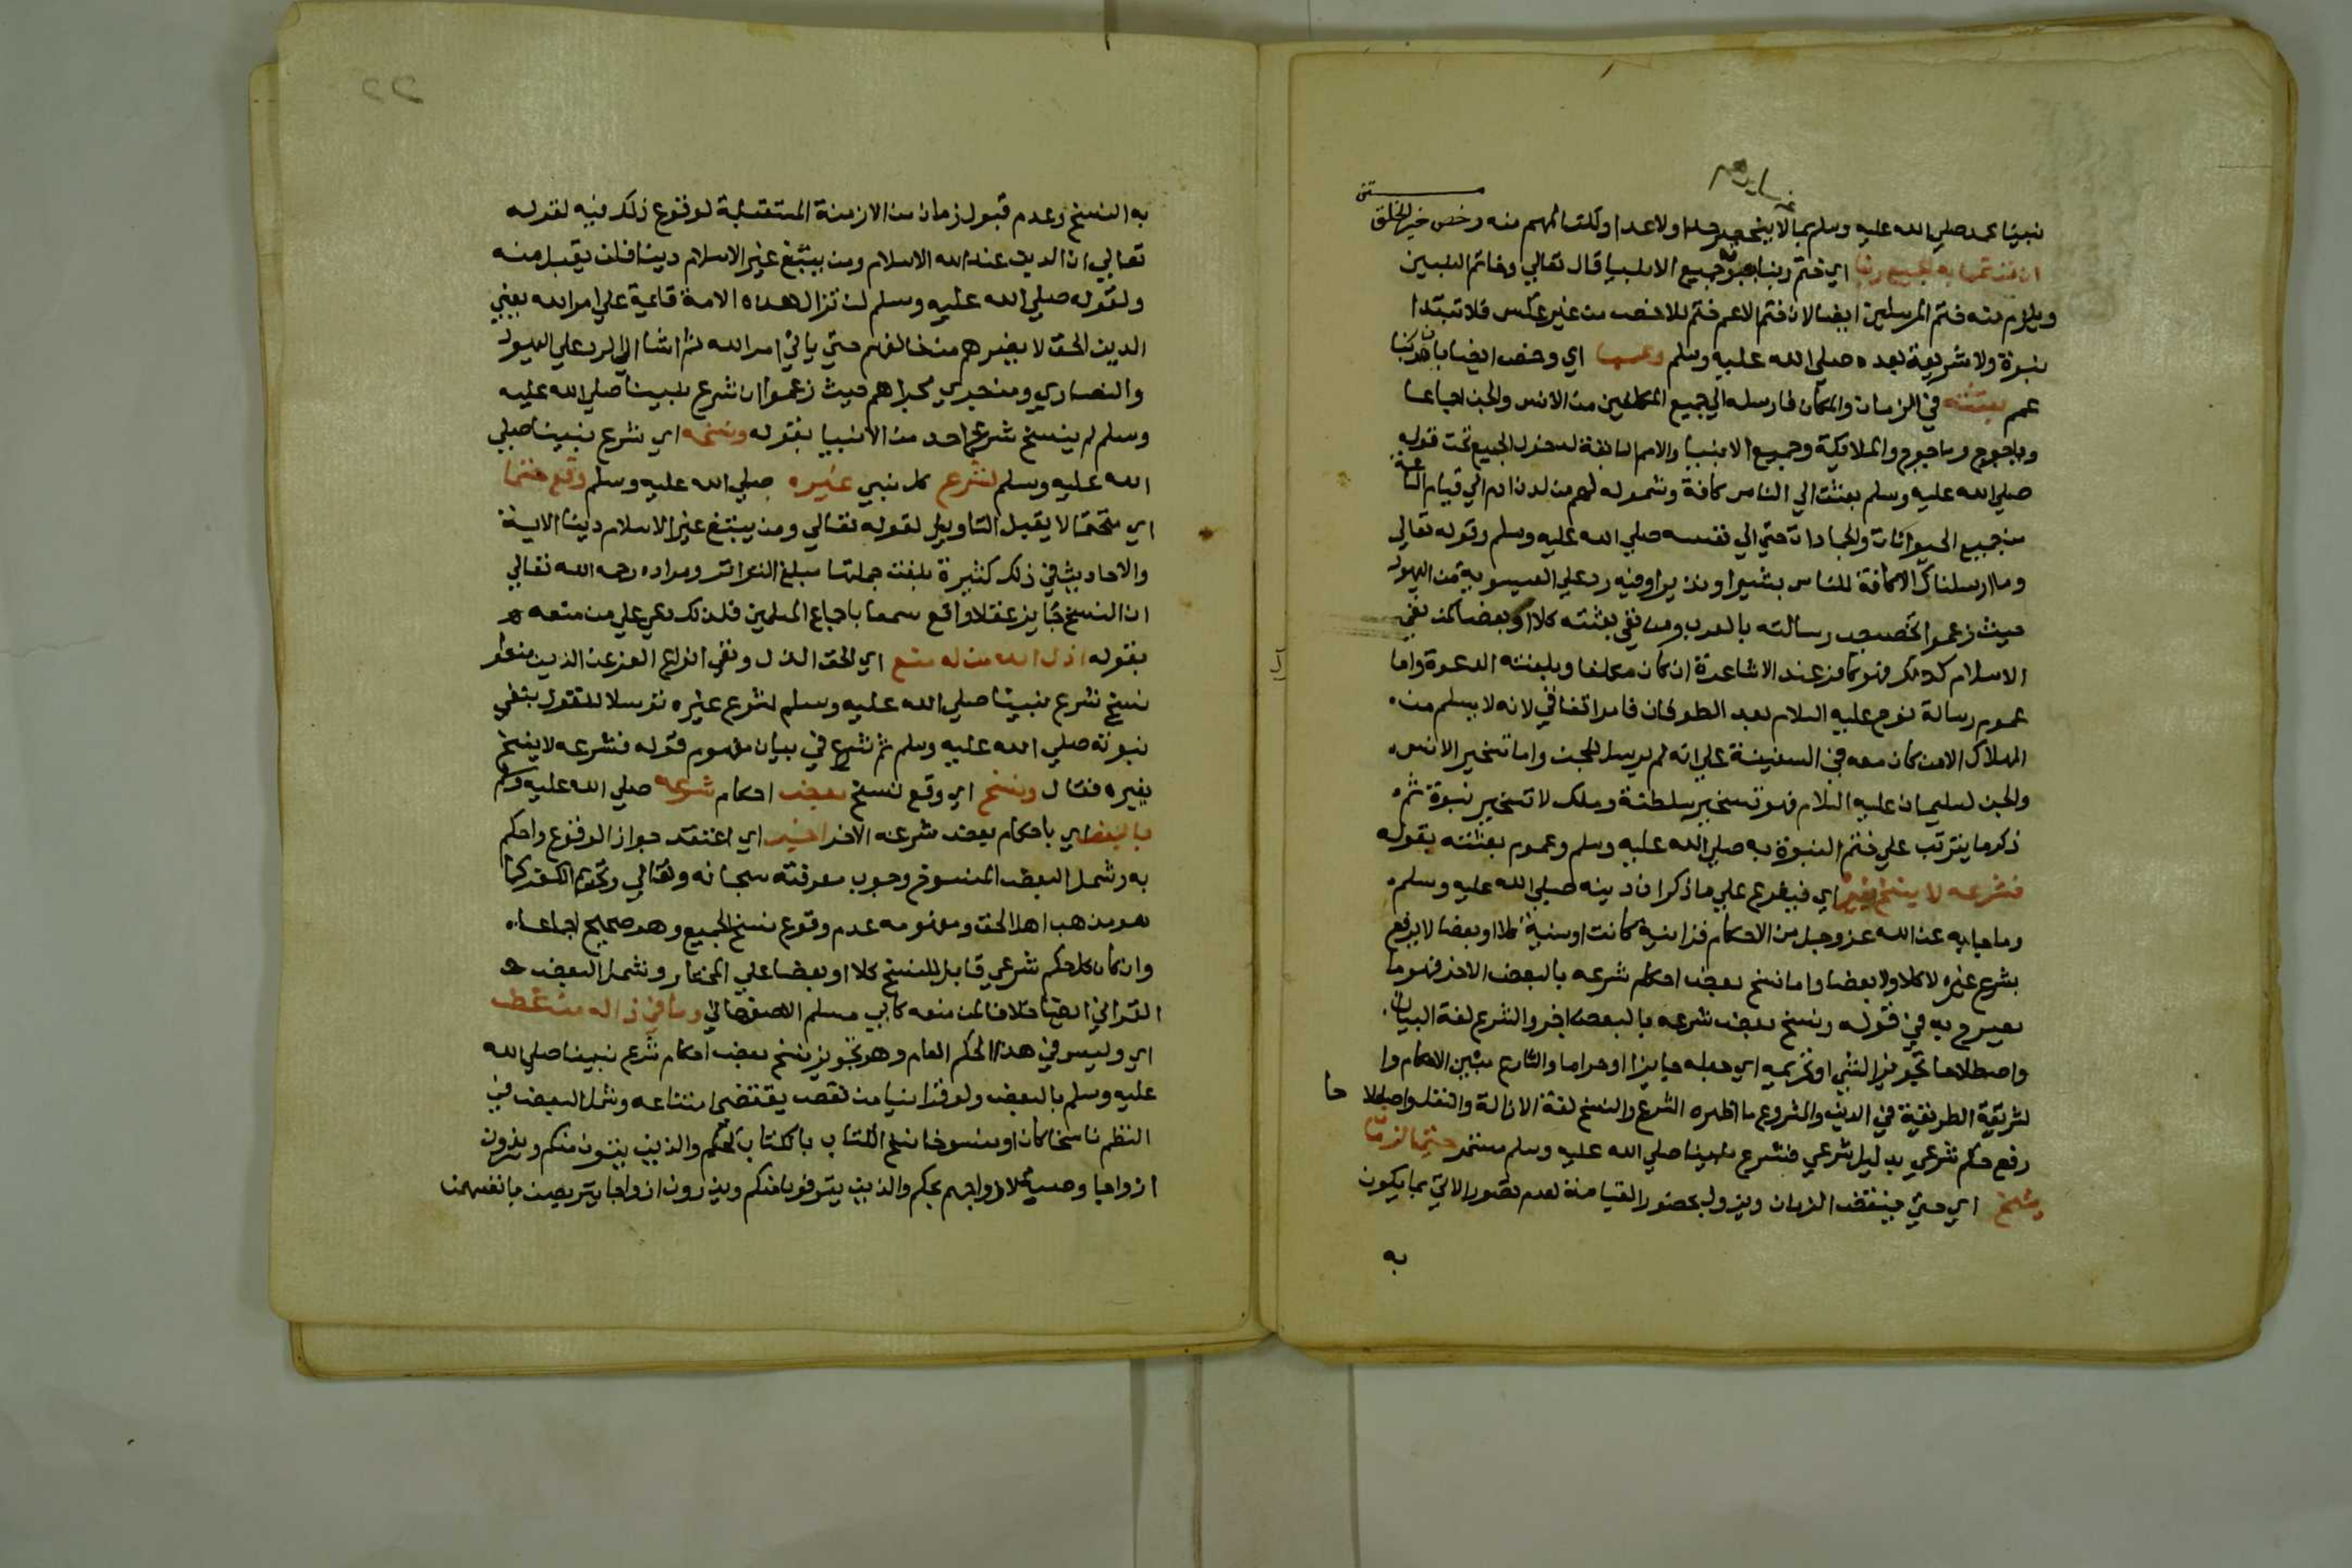 نبينا محمد صلي الله عليه وسلم بما لا ينحصر حدا ولا عدا ولكن المهم منه وخص خير الخلق
ان قد تمما به الجميع ربنا اي ختم ربنا به جميع الانبيا قال تعالي وخاتم النبيين
ويلزم منه ختم المرسلين ايضا لان ختم الاعم ختم للاخص من غير عكس فلا تبتدا
نبوة ولا شريعة بعده صلي الله عليه وسلم وعمما اي وخص ايضا بان ربنا
عمم بعثته في الزمان والمكان فارسله الي جميع المكلفين من الانس والجن اجماعا
وياجوج وماجوج والملايكة وجميع الانبيا والامم السابقة لدخول الجميع تحت قوله
صلي الله عليه وسلم بعثت الي الناس كافة وشموله لهم من لدن ادم الي قيام الساعة
من جميع الحيوانات والجمادات حتي الي نفسه صلي الله عليه وسلم وقوله تعالي
وما ارسلناك الا كافة للناس بشيرا ونذيرا وفيه رد علي العيسوية من اليهود
حيث زعموا تخصيص رسالته بالعرب ومن نفي بعثته كلا او بعضا كمن نفي
الاسلام كذلك فهو كافر عند الاشاعرة ان كان مكلفا وبلغته الدعوة واما
عموم رسالة نوح عليه السلام بعد الطوفان فامر اتفاقي لانه لا يسلم من
الهلاك الا من كان معه في السفينة علي انه لم يرسل للجن واما تسخير الانس
والجن لسليمان عليه السلام فهو تسخير سلطنة وملك لا تسخير نبوة ثم
ذكر ما يترتب علي ختم النبوة به صلي الله عليه وسلم وعموم بعثته بقوله
فشرعه لا ينسخ بغيره اي فيفرع علي ما ذكر ان دينه صلي الله عليه وسلم
وما جا به عن الله عز وجل من الاحكام قرانية كانت او سنية كلا او بعضا لا يرفع
بشرع غيره لا كلا ولا بعضا واما نسخ بعض احكام شرعه بالبعض الاخر فهو ما
يصرح به في قوله ونسخ بعض شرعه بالبعض اجز والشرع لغة البيان
واصطلاحا تجويز الشي او تحريمه اي جعله جايزا او حراما والشارع مبين الاحكام وا
لشريعة الطريقة في الدين والمشروع ما اظهره الشرع والنسخ لغة الازالة والنقل واصطلاحا
رفع حكم شرعي بدليل شرعي فشرع نبينا صلي الله عليه وسلم مستمر حتي الزمان
ينسخ اي حتي ينقضي الزمان ويزول بحضور القيامة لعدم تصور الاتي بما يكون
به
٢٢
به النسخ وعدم قبول زمان من الازمنة المستقبلة لوقوع ذلك فيه لقوله
تعالي ان الدين عند الله الاسلام ومن يبتغ غير الاسلام دينا فلن يقبل منه
ولقوله صلي الله عليه وسلم لن تزال هذه الامة قايمة علي امر الله يعني
الدين الحق لا يضرهم من خالفهم حتي ياتي امر الله ثم اشار الي الرد علي اليهود
والنصاري ومن جري مجراهم حيث زعموا ان شرع نبينا صلي الله عليه
وسلم لم ينسخ شرع احد من الانبيا بقوله ونسخه اي شرع نبينا صلي
الله عليه وسلم لشرع كل نبي غيره صلي الله عليه وسلم وقع حتما
اي متحتما لا يقبل التاويل لقوله تعالي ومن يبتغ غير الاسلام دينا الاية
والاحاديث في ذلك كثيرة بلغت جملتها مبلغ التواتر ومراده رحمه الله تعالي
ان النسخ جايز عقلا واقع سمعا باجماع المسلمين فلذلك دعي علي من منعه
بقوله اذل الله من له منع اي الحق الذل ونفي انواع العز عن الذين منعوا
نسخ شرع نبينا صلي الله عليه وسلم لشرع غيره توسلا للقول بنفي
نبوته صلي الله عليه وسلم ثم شرع في بيان مفهوم قوله فشرعه لا ينسخ
بغيره فقال ونسخ اي وقع نسخ بعض احكام شرعه صلي الله عليه وسلم
بالبعض اي باحكام بعض شرعه الاخر اجز اي اعتقد جواز الوقوع واحكم
به وشمل البعض المنسوخ وجوب معرفته سبحانه وتعالي وتحريم الكفر كما
هو مذهب اهل الحق ومفهومه عدم وقوع نسخ الجميع وهو صحيح اجماعا
وان كان كل حكم شرعي قابل للنسخ كلا او بعضا علي المختار وشمل البعض
القراني ايضا خلافا لمن منعه كابي مسلم الاصفهاني وما في ذا له من غض
اي وليس في هذا الحكم العام وهو تجويز نسخ بعض احكام شرع نبينا صلي الله
عليه وسلم بالبعض ولو قرانيا من نقص يقتضي امتناعه وشمل البعض في
النظم ناسخا كان او منسوخا نسخ الكتاب بالكتاب كحكم والذين يتوفون منكم ويذرون
ازواجا وصية لازواجهم بحكم والذين يتوفون منكم ويذرون ازواجا يتربصن بانفسهن